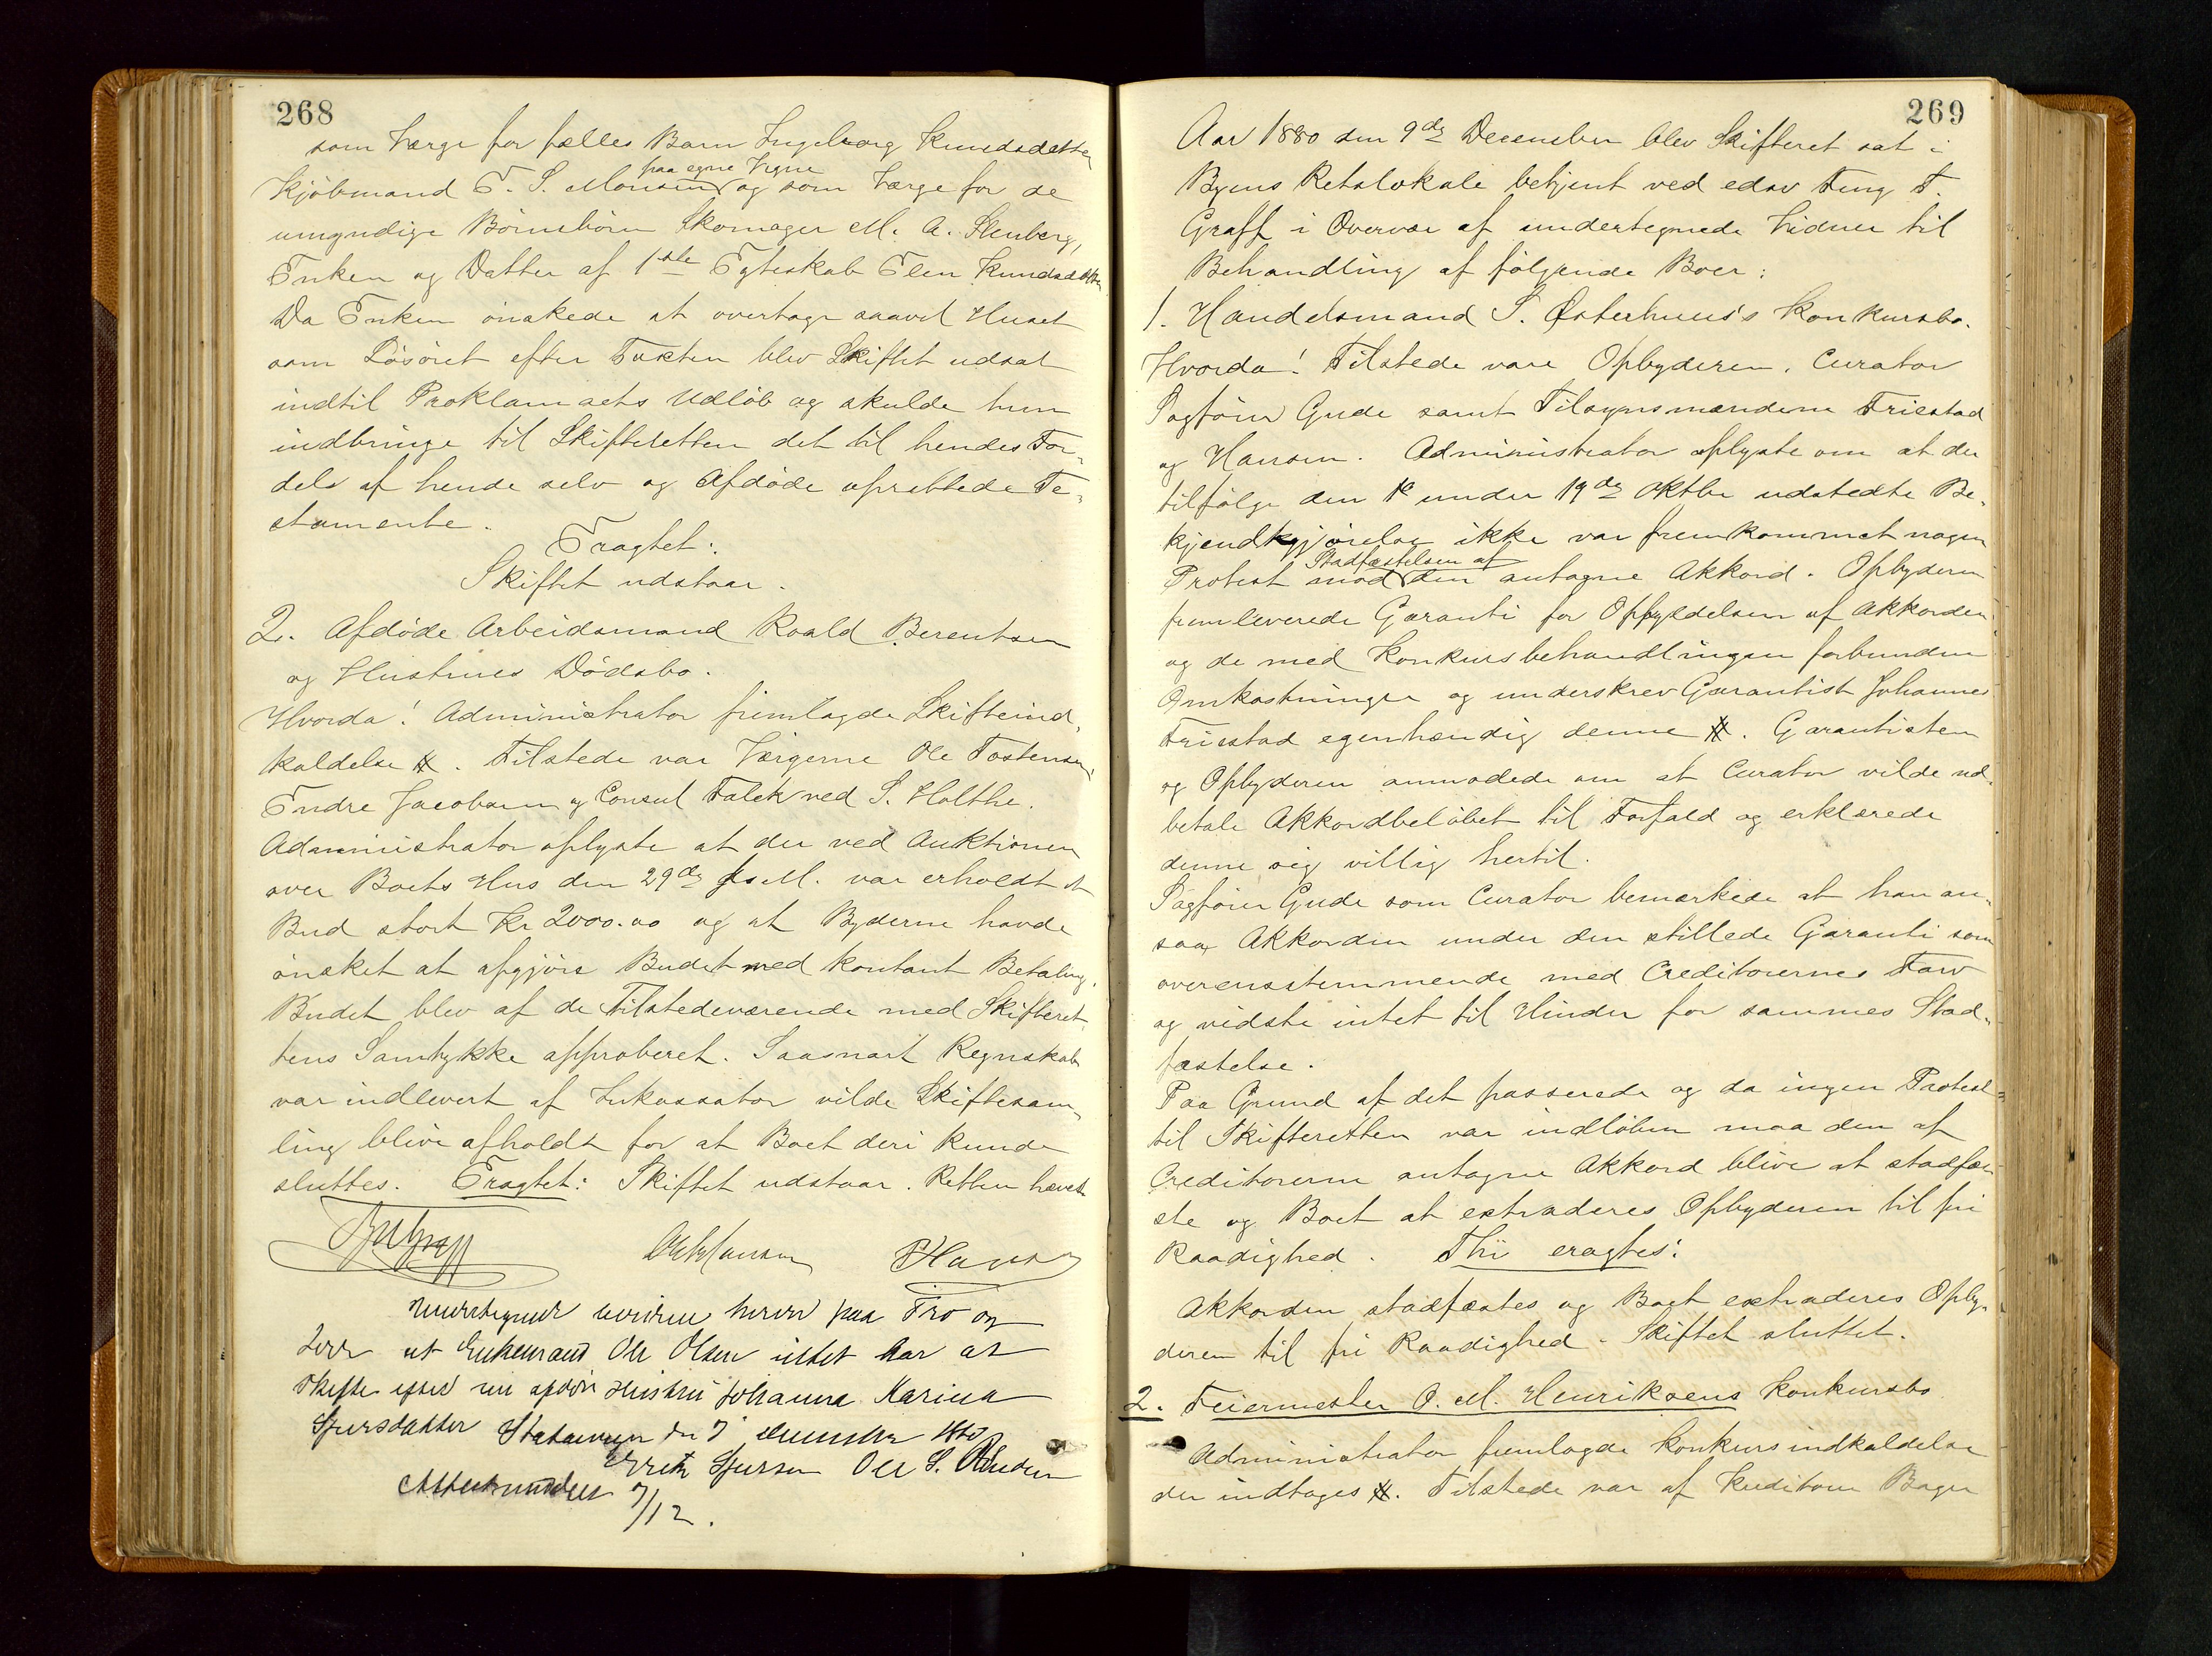 268
som Værge for fælles Barn Ingeborg Knudsdatter
paa egne Vegne
Kjøbmand E. S. Monsen og som Værge for de
umyndige Børnebørn Skomager M. A. Stenberg,
Enken og Datter af 1ste Egteskab Elen Knudsdatter
Da Enken ønskede at overtage saavel Huset
som Løsøret efter Taxten blev Skiftet udsat
indtil Proklamaets Udløb og skulde hun
indbringe til Skifteretten det til hendes For-
dels af hende selv og Afdøde oprettede Te-
stamente.
Eragtet:
Skiftet udstaar.
2. Afdøde Arbeidsmand Roald Berentsen
og Hustrues Dødsbo.
Hvorda! Administrator fremlagde Skifteind-
kaldelse #. Tilstede var Værgerne Ole Tostensen,
Endre Jacobsen og Consul Falck ved S. Holthe.
Administrator oplyste at der ved Auktionen
over Boets Hus den 29de f. M. var erholdt et
Bud stort Kr 2000.00 og at Byderne havde
ønsket at afgjøre Budet med kontant Betaling.
Budet blev af de Tilstedeværende med Skifteret-
tens Samtykke approberet. Saasnart Regnskab
var indlevert af Inkassator vilde Skiftesam-
ling blive afholdt for at Boet deri kunde
sluttes. Eragtet: Skiftet udstaar. Retten hævet
Graff Hansen Hansen
Undertegnede bevidne herved paa Tro og
Love at Enkemand Ole Olsen intet har at
skifte efter sin afdøde Hustru Johanna Karina
Sjursdatter Stavanger den 7 December 1880
Sjursen Ole S.
7/12.
269
Aar 1880 den 9de December blev Skifteret sat i
Byens Retslokale betjent ved edsv Fung T.
Graff i Overvær af undertegnede Vidner til
Behandling af følgende Boer:
1. Handelsmand S. Østerhuus's Konkursbo.
Hvorda! Tilstede vare Opbyderen, Curator
Sagfører Gude samt Tilsynsmændene Friestad
og Hansen. Administrator oplyste om at der
tilfølge den under 19de Oktbr udstedte Be-
kjendtgjørelse ikke var fremkommet nogen
Stadfæstelsen af
Protest mod den antagne Akkord. Opbyderen
fremleverede Garanti for Opfyldelsen af Akkorden
og de med Konkursbehandlingen forbundne
Omkostninger og underskrev Garantist Johannes
Friestad egenhændig denne #. Garantisten
og Opbyderen anmodede om at Curator vilde ud-
betale Akkordbeløbet til Forfald og erklærede
denne sig villig hertil.
Sagfører Gude som Curator bemærkede at han an-
saa Akkorden under den stillede Garanti som
overensstemmende med Creditorernes Tarv
og vidste intet til Hinder for sammes Stad-
fæstelse.
Paa Grund af det passerede og da ingen Protest
til Skifteretten var indløben maa den af
Creditorerne antagne Akkord blive at stadfæ-
ste og Boet at extraderes Opbyderen til fri
Raadighed. Thi eragtes:
Akkorden stadfæstes og Boet extraderes Opby-
deren til fri Raadighed - Skiftet sluttet.
2. Feiermester O. M. Henriksens Konkursbo
Administrator fremlagde Konkursindkaldelse
der indtages #. Tilstede var af Kreditorer Bager